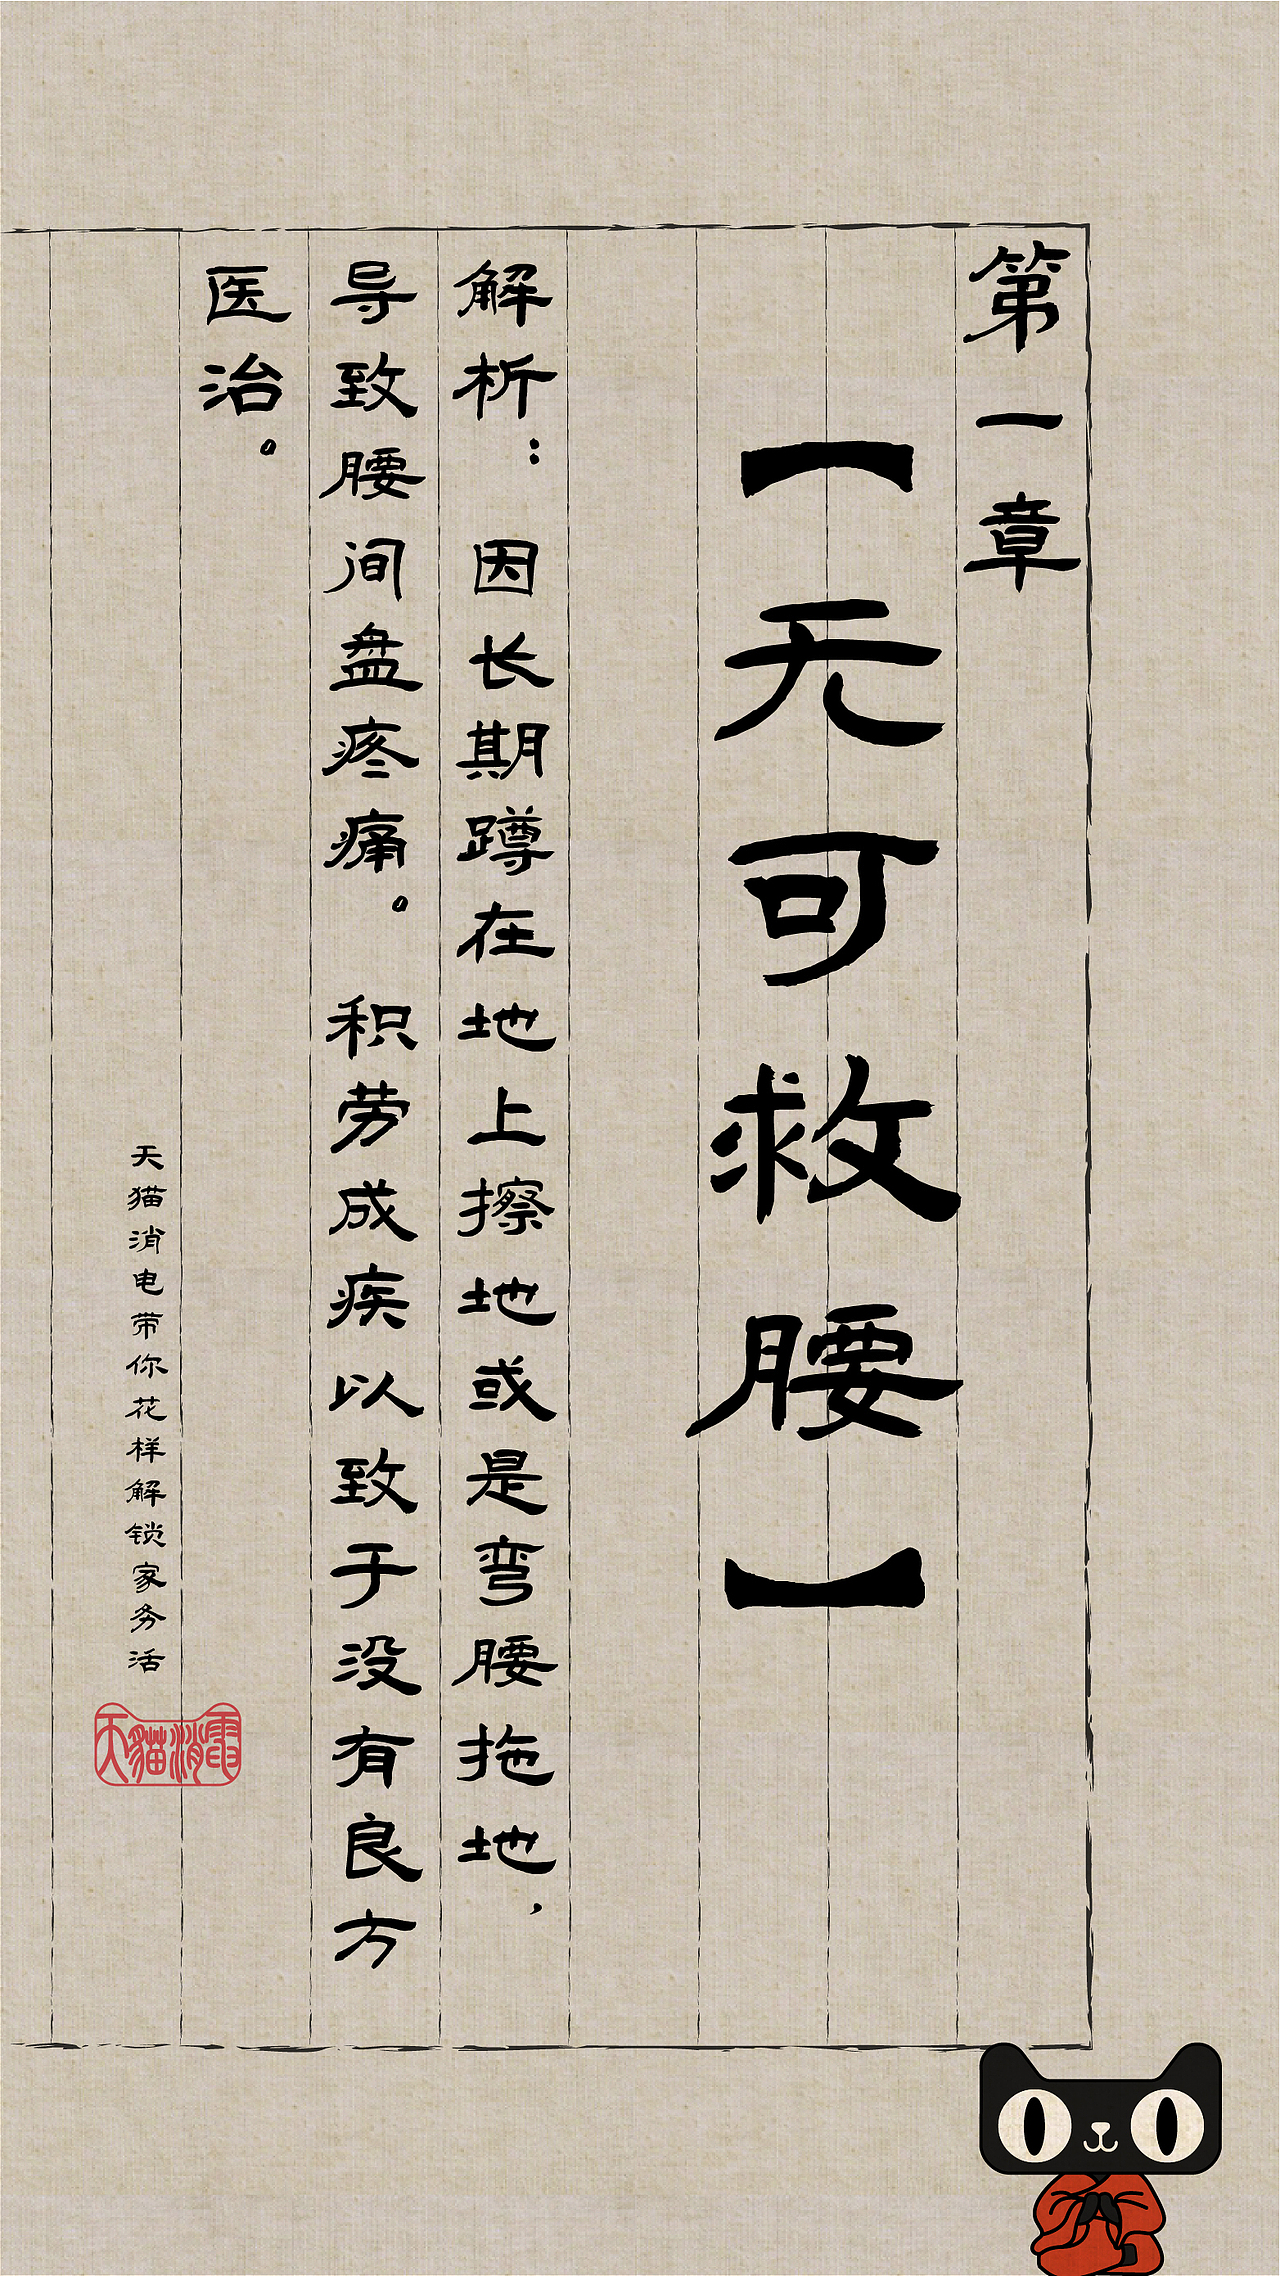 第一章
【无可救腰】
解析：因长期蹲在地上擦地或是弯腰拖地，
导致腰间盘疼痛。积劳成疾以致于没有良方
医治。
天猫消电带你花样解锁家务活
天貓消電